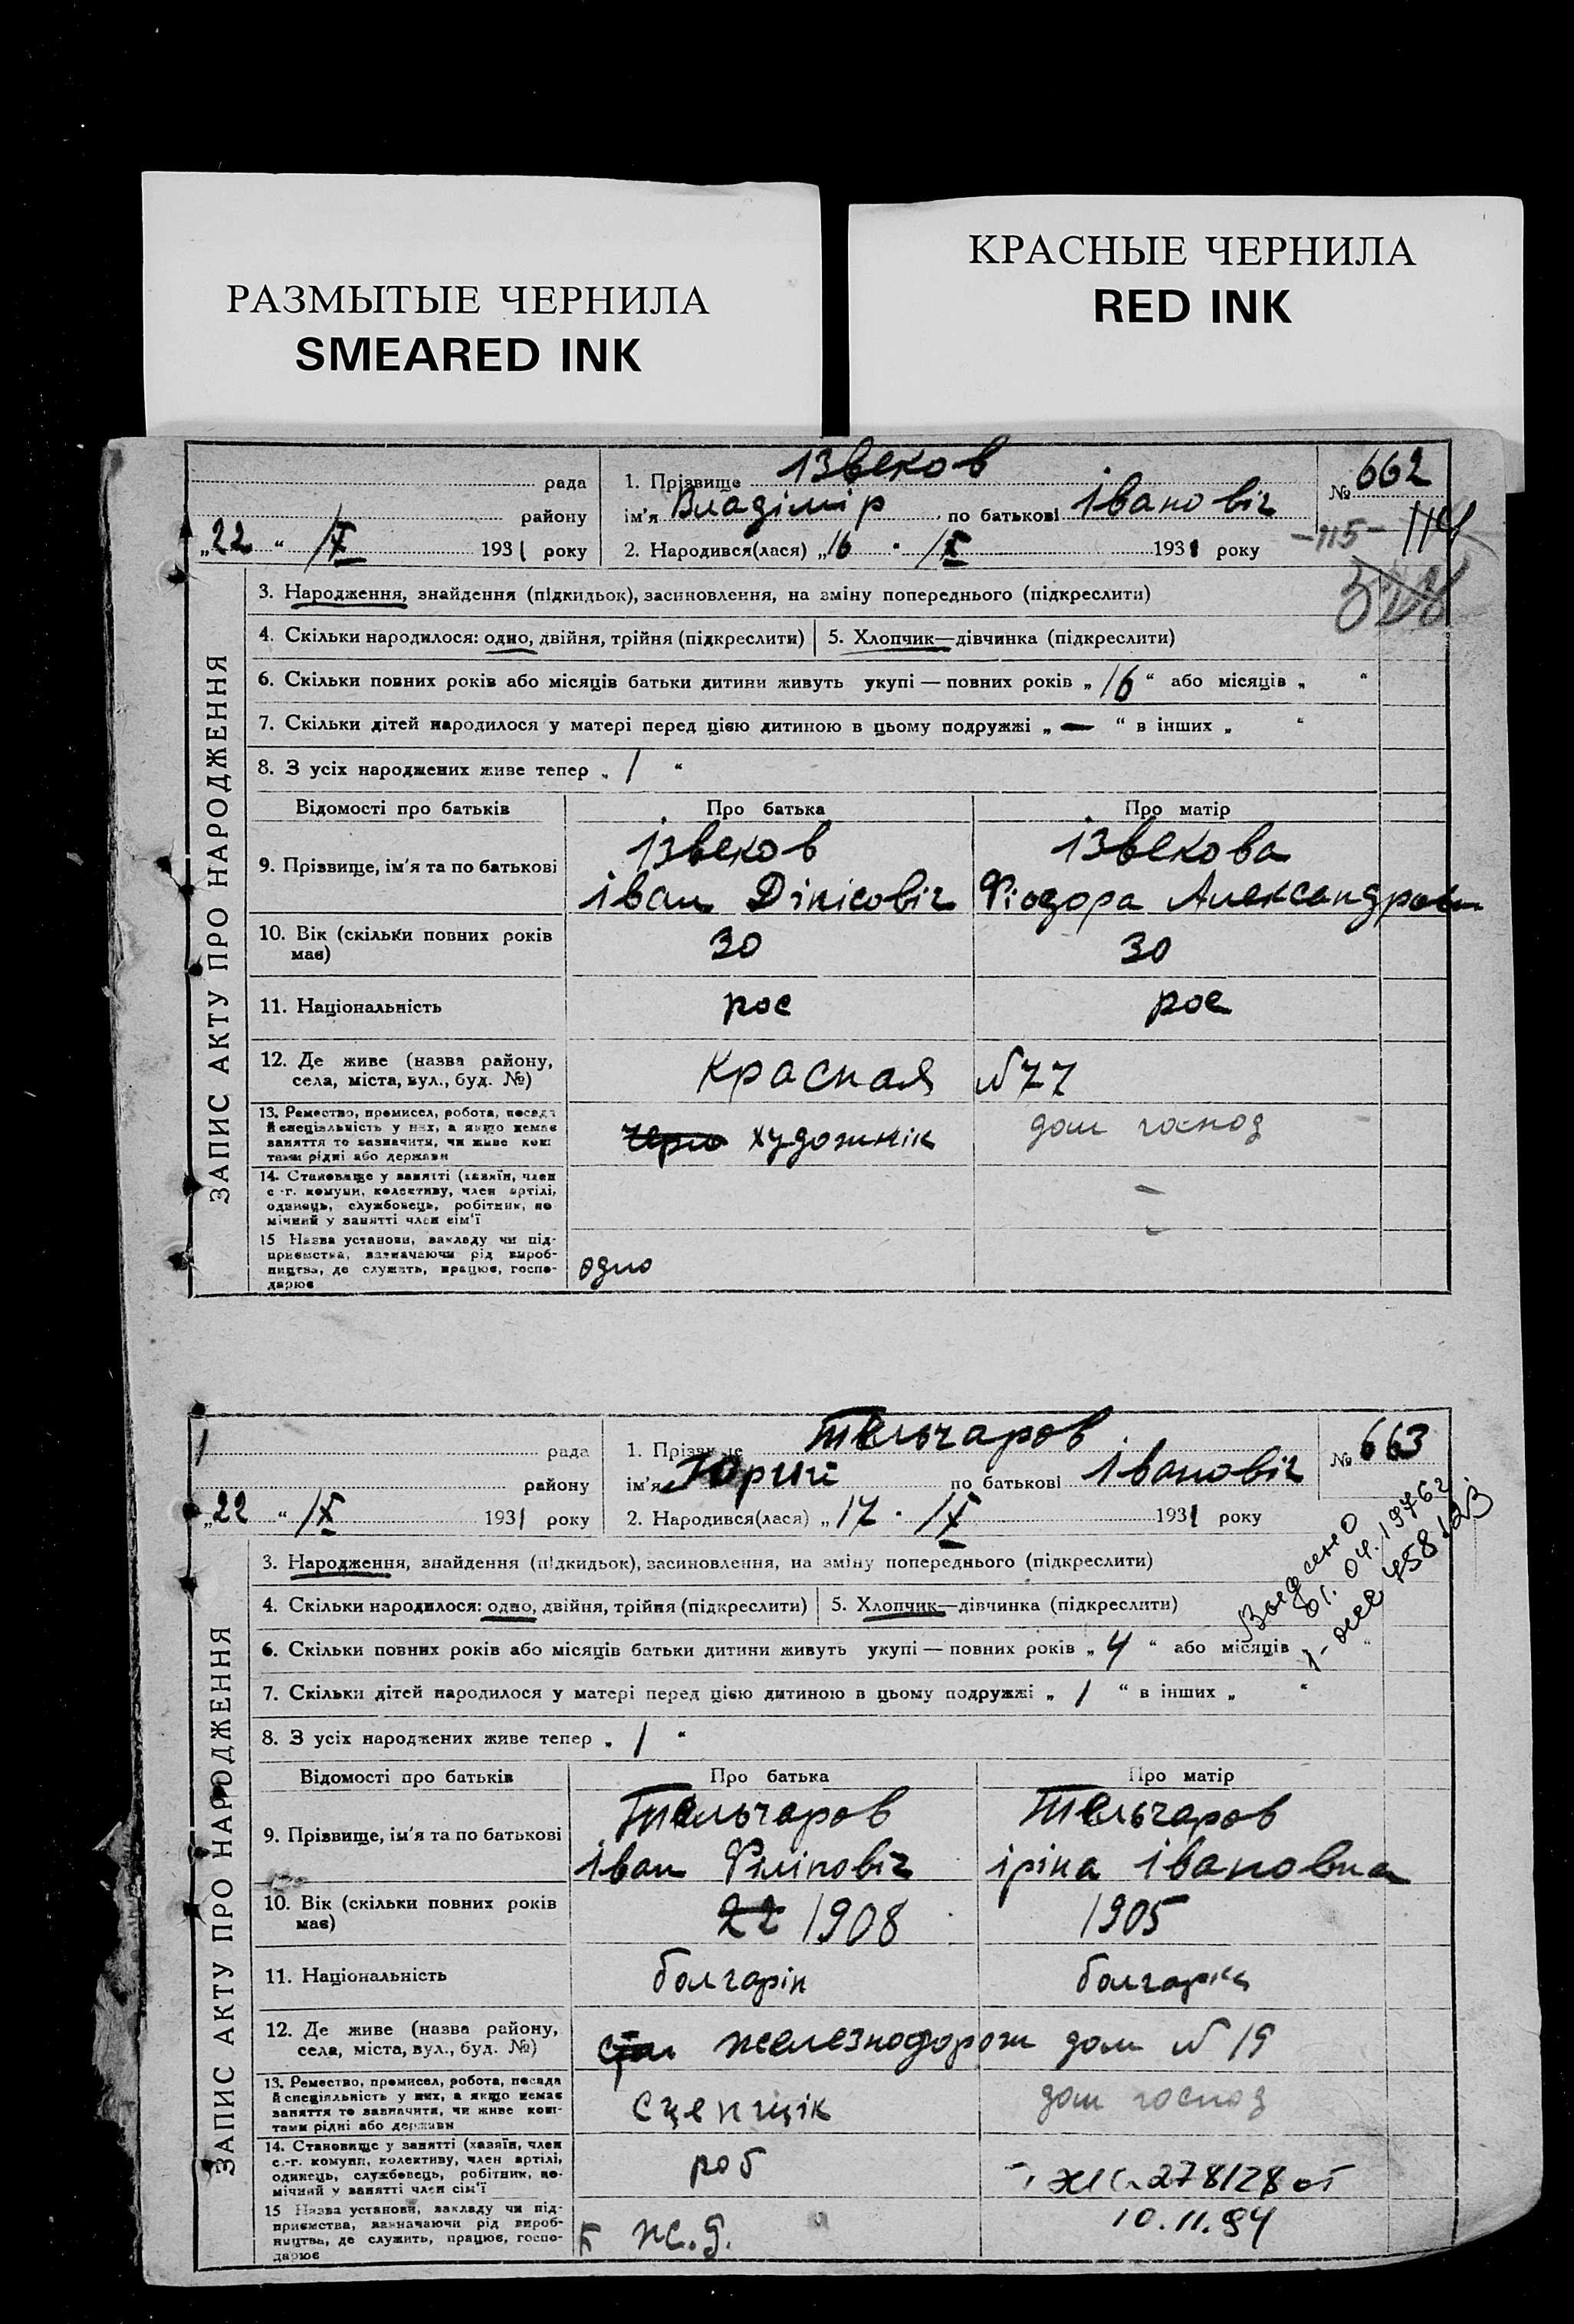 РАЗМЫТЫЕ ЧЕРНИЛА
SMEARED INK
КРАСНЫЕ ЧЕРНИЛА
RED INK
рада
району
„22“ IX 1931 року
1. Прізвище Ізвеков
ім'я Владімір по батькові Івановіч
2. Народився(лася) „16“ IX 1931 року
№ 662
-115- 114
328
ЗАПИС АКТУ ПРО НАРОДЖЕННЯ
3. Народження, знайдення (підкидьок), засиновлення, на зміну попереднього (підкреслити)
4. Скільки народилося: одно, двійня, трійня (підкреслити) 5. Хлопчик—дівчинка (підкреслити)
6. Скільки повних років або місяців батьки дитини живуть укупі — повних років „16“ або місяців „ “
7. Скільки дітей народилося у матері перед цією дитиною в цьому подружжі „—“ в інших „ “
8. З усіх народжених живе тепер „1“
Відомості про батьків Про батька Про матір
9. Прізвище, ім'я та по батькові
Ізвеков Ізвекова
Іван Дінісовіч Фіодора Александровн
10. Вік (скільки повних років має) 30 30
11. Національність рос рос
12. Де живе (назва району, села, міста, вул., буд. №) Красная №77
13. Ремество, промисел, робота, посада й спеціяльність у них, а якщо немає заняття то зазначити, чи живе коштами рідні або держави
художнік дом господ
14. Становище у занятті (хазяїн, член с.-г. комуни, колективу, член артілі, одинець, службовець, робітник, помічний у занятті член сім'ї –
15 Назва установи, закладу чи підприємства, зазначаючи рід виробництва, де служить, працює, господарює
одно –
рада
району
„22“ IX 1931 року
1. Прізвище Тельчаров
ім'я Юрий по батькові Івановіч
2. Народився(лася) „17“ IX 1931 року
№ 663
01.04.1976
ЗАПИС АКТУ ПРО НАРОДЖЕННЯ
3. Народження, знайдення (підкидьок), засиновлення, на зміну попереднього (підкреслити)
4. Скільки народилося: одно, двійня, трійня (підкреслити) 5. Хлопчик—дівчинка (підкреслити)
6. Скільки повних років або місяців батьки дитини живуть укупі — повних років „4“ або місяців „ “
7. Скільки дітей народилося у матері перед цією дитиною в цьому подружжі „1“ в інших „ “
8. З усіх народжених живе тепер „1“
Відомості про батьків Про батька Про матір
9. Прізвище, ім'я та по батькові
Тельчаров Тельчаров
Іван Філіповіч Іріна Івановна
10. Вік (скільки повних років має) 22 1908 1905
11. Національність болгарін болгарка
12. Де живе (назва району, села, міста, вул., буд. №) железнодорож дом № 19
13. Ремество, промисел, робота, посада й спеціяльність у них, а якщо немає заняття то зазначити, чи живе коштами рідні або держави
сцепщік дом господ
14. Становище у занятті (хазяїн, член с.-г. комуни, колективу, член артілі, одинець, службовець, робітник, помічний у занятті член сім'ї
роб 278/28 от
10.11.94
15 Назва установи, закладу чи підприємства, зазначаючи рід виробництва, де служить, працює, господарює
ж.д.